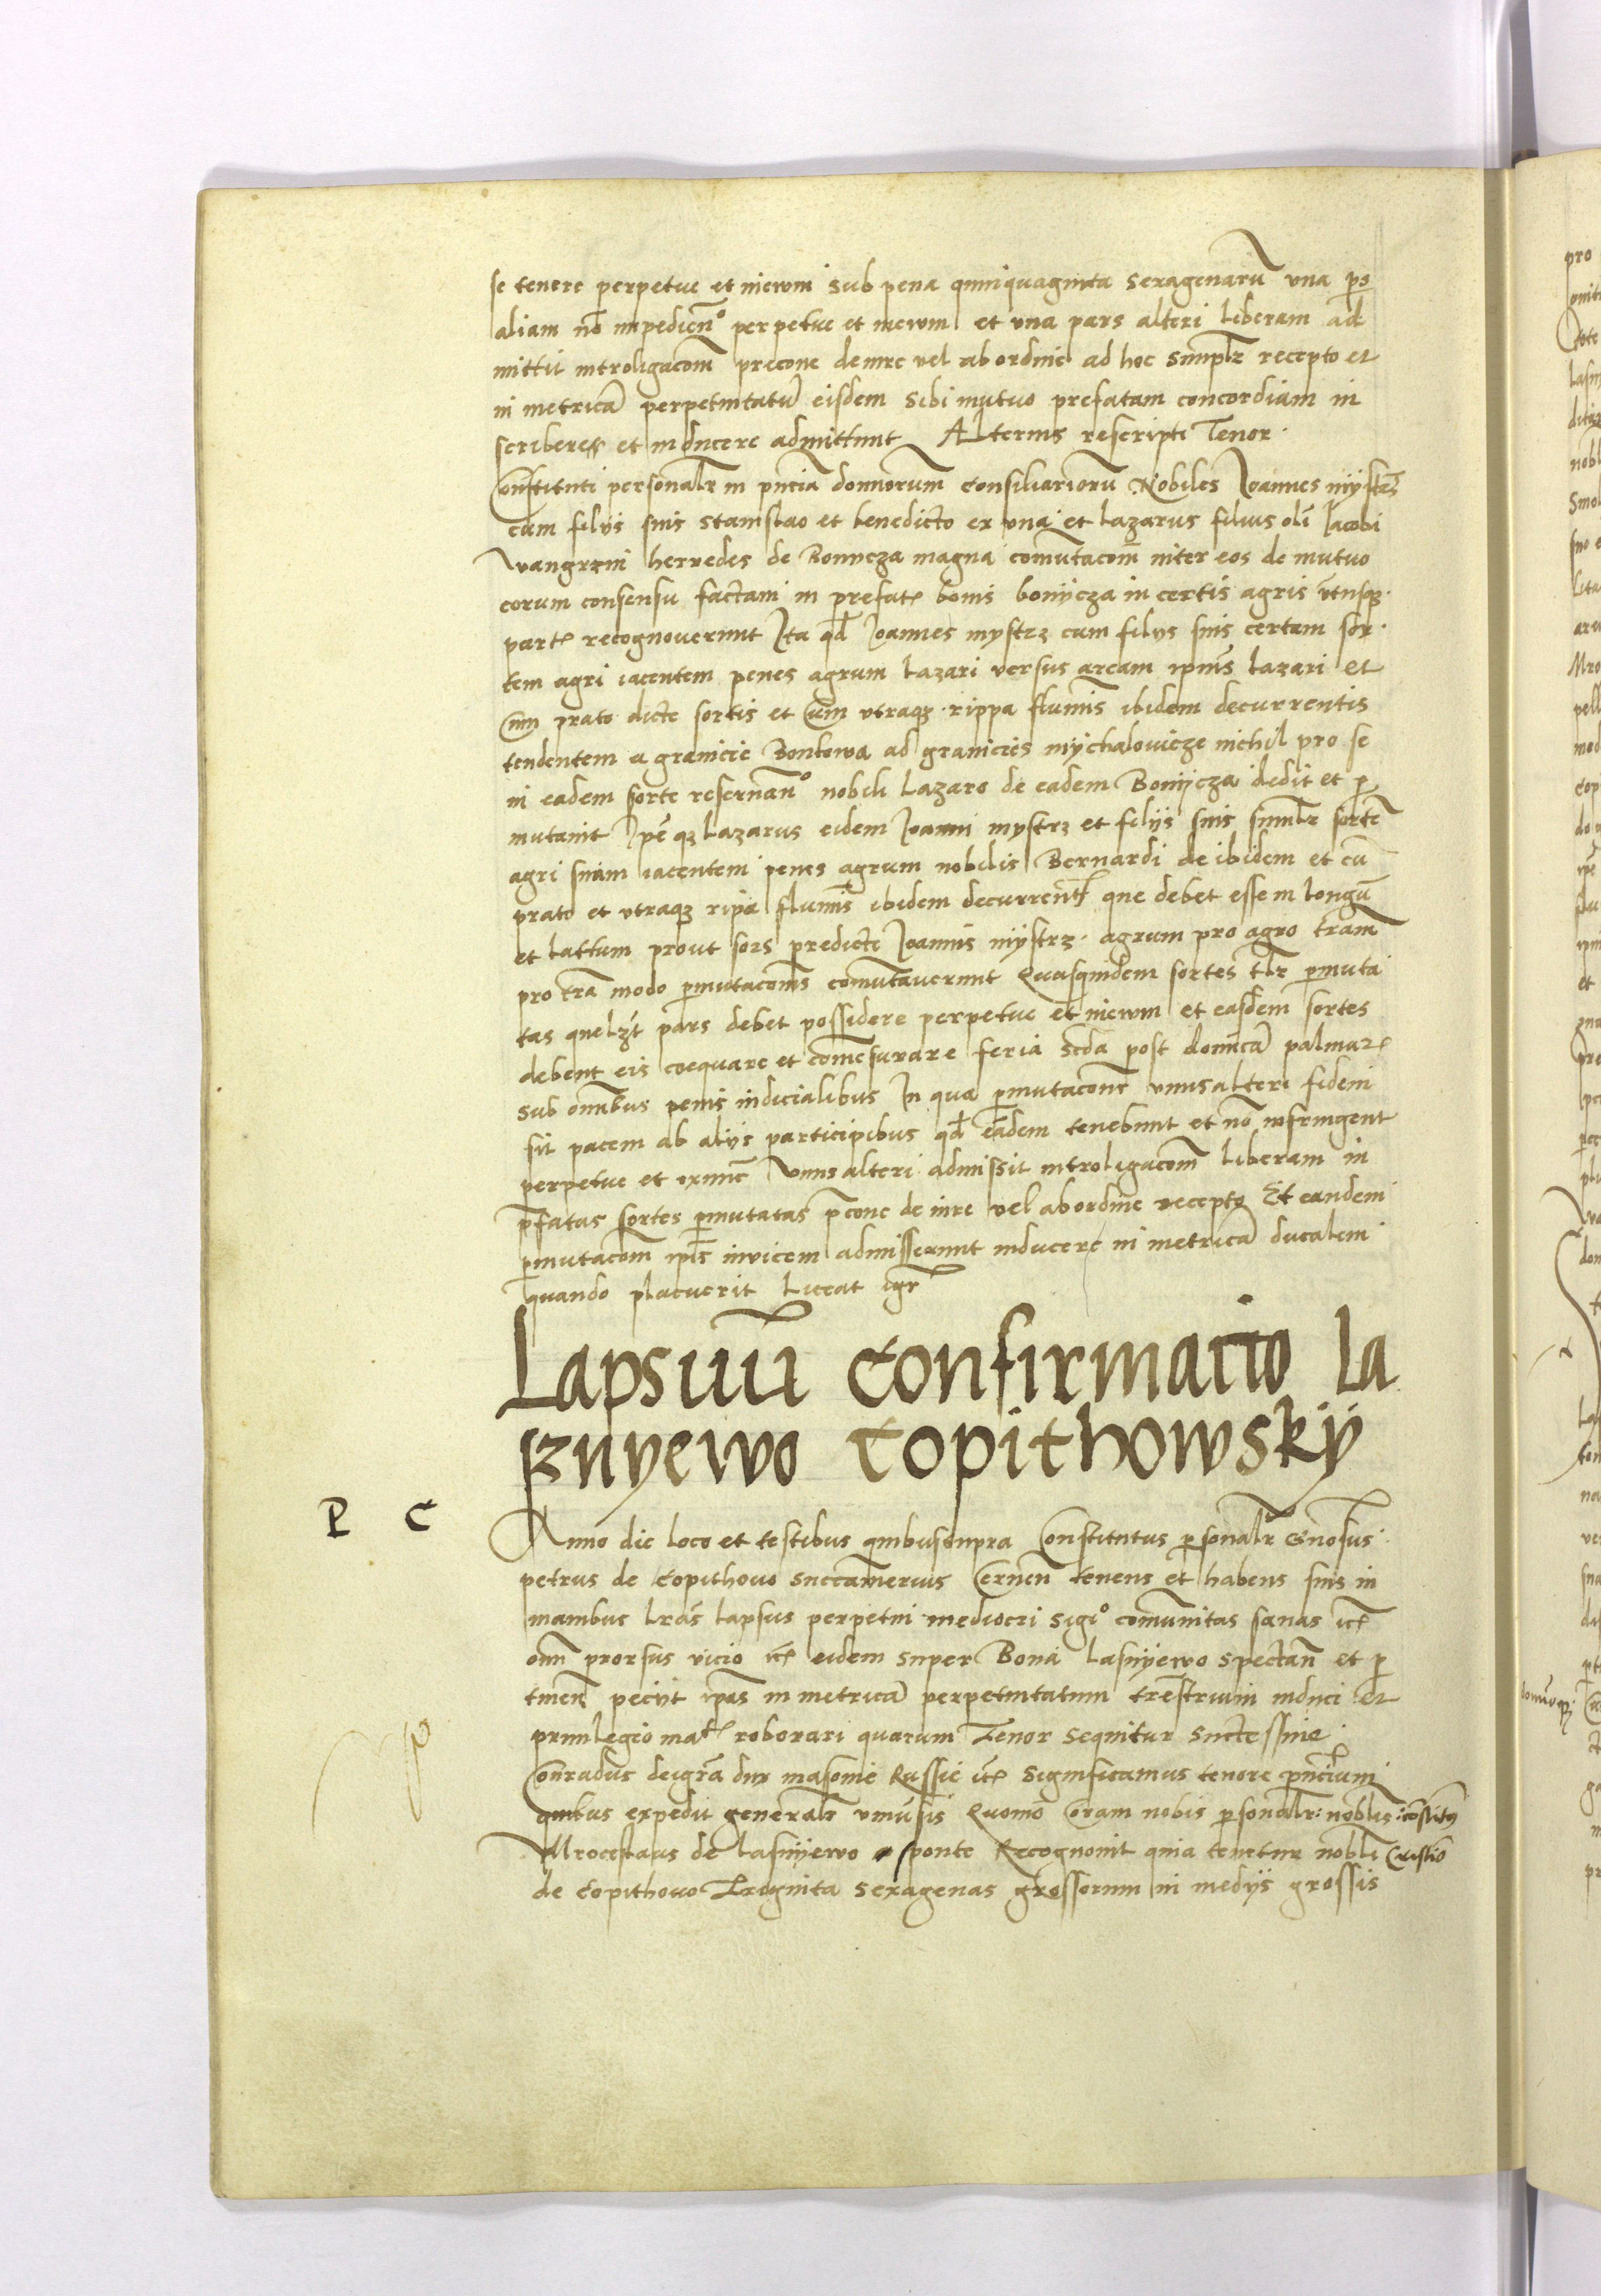 se tenere perpetue et in ewm sub pena quinquaginta sexagenarũ una ps
aliam nõ impedienº perpetue et in ewm et una pars alteri liberam ad
mittit introligacoẽm precone de iure vel ab ordine ad hoc simplr recepto et
in metricã perpetuitatũ eisdem sibi mutuo prefatam concordiam in
scribere et inducere admittunt Alterius rescripti Tenor
Constituti personalr in pñcia dominorum consiliariorũ Nobiles Joannes mystrz
cum filijs suis stanislao et benedicto ex una et Lazarus filius olĩ Jacobi
wangrzin heredes de Bonycza magna comutacoẽm inter eos de mutuo
eorum consensu factam in prefat bonis bonijcza in certis agris utriusqz
part recognoverunt Ita qd Joannes mystrz cum filijs suis certam sor
tem agri iacentem penes agrum Lazari versus aream ipius Lazari et
cum prato dicte sortis et cum utraqz rippa fluminis ibidem decurrentis
tendentem a granicie Bontowa ad granicies mijchalovicze nichil pro se
in eadem sorte reservanº nobili Lazaro de eadem Bonijcza dedit et p
mutavit Ipeqz Lazarus eidem Joanni mystrz et filijs suis similr sortẽ
agri suam iacentem penes agrum nobilis Bernardi de ibidem et cũ
prato et utraqz ripa fluminis ibidem decurrent que debet esse in longũ
et lattum prout sors predicti Joannis mijstrz agrum pro agro terram
pro trã modo pmutacoĩs comutaverunt Quasquidem sortes tlr pmuta
tas quelzt pars debet possidere perpetue et in ewm et easdem sortes
debent eis coequare et comesurare feria scda post dominicã palmar
sub omnibus penis iudicialibus In qua pmutacone unus alteri fideiu
sit pacem ab alijs participibus qd eãdem tenebunt et nõ infringent
perpetue et exnũc Unus alteri admissit introligacoẽm liberam in
pfatas sortes pmutatas pcone de iure vel ab ordine recepto Et eandem
pmutacoẽm ipĩs invicem admisserunt inducere in metricã ducalem
quando placuerit liceat igr
Lapsuũ Confirmatio la
sznyewo Copithowskij
P C
Anno die loco et testibus quibus supra Constitutus psonalr Gnosus
petrus de Copithowo succamerius Cernen tenens et habens suis in
manibus lrãs lapsus perpetui mediocri sigº comunitas sanas itc
omĩ prorsus vicio itc eidem super Bona lasnyewo spectan et p
tinen peciit ipas in metricã perpetuitatum trestrium induci et
privilegio mat roborari quarum Tenor sequitur Suctessive
Conradus dei grã dux masovie Russie itc significamus tenore pñcium
quibus expedit generalr universis Quomõ Coram nobis psonalr: nobilis: constitutus
Mrocslaus de lasnyewo sponte Recognovit quia tenetur nobli Cristio
de Copithowo Triginta sexagenas grossorum in medijs grossis